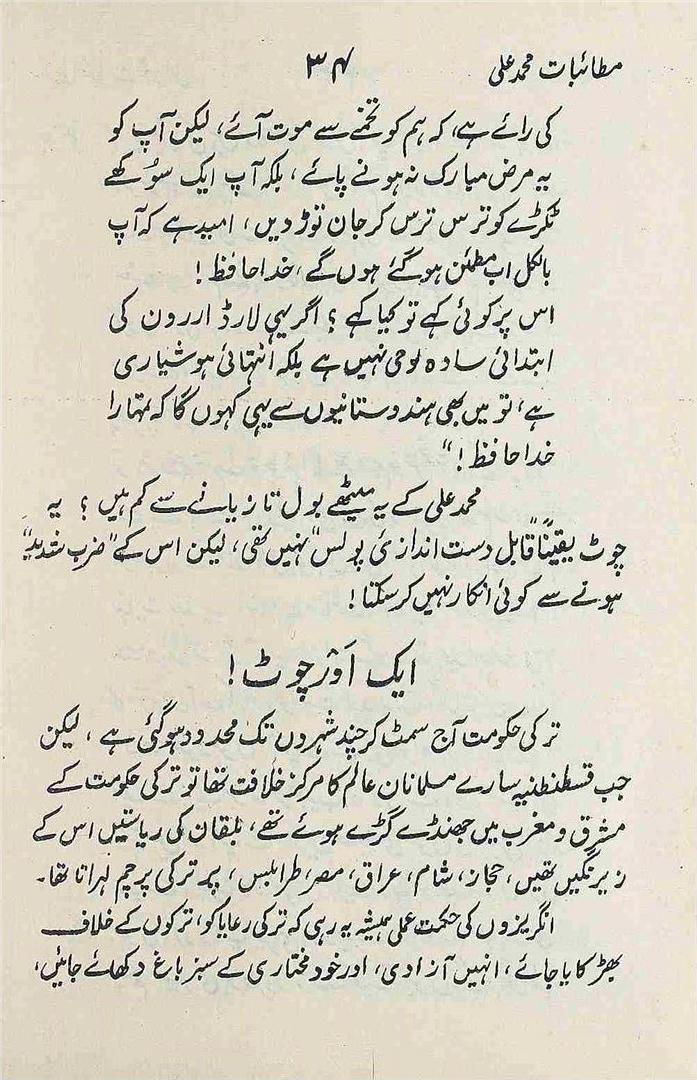 مطائبات محمد علی
۳۴
کی رائے ہے، کہ ہم کو تخمے سے موت آئے، لیکن آپ کو
یہ مرض مبارک نہ ہونے پائے، بلکہ آپ ایک سوُکھے
ٹکڑے کو ترس ترس کر جان توڑ دیں، امید ہے کہ آپ
بالکل اب مطمئن ہو گئے ہوں گے، خدا حافظ!
اس پر کوئی کہے تو کیا کہے؟ اگر یہی لارڈ اررون کی
ابتدائی سادہ لوحی نہیں ہے بلکہ انتہائی ہوشیاری
ہے، تو میں بھی ہندوستانیوں سے یہی کہوں گا کہ تمہارا
خدا حافظ!"
محمد علی کے یہ میٹھے بول تازیانے سے کم ہیں؟ یہ
چوٹ یقیناً "قابل دست اندازیٔ پولس" نہیں تھی، لیکن اس کے "ضرب شدید"
ہونے سے کوئی انکار نہیں کر سکتا!
ایک اَوْر چوٹ!
ترکی حکومت آج سمٹ کر چند شہروں تک محدود ہو گئی ہے، لیکن
جب قسطنطنیہ سارے مسلمانان عالم کا مرکز خلافت تھا تو ترکی حکومت کے
مشرق و مغرب میں جھنڈے گڑے ہوئے تھے، بلقان کی ریاستیں اس کے
زیر نگیں تھیں، حجاز، شام، عراق، مصر، طرابلس، پر ترکی پرچم لہراتا تھا۔
انگریزوں کی حکمت عملی ہمیشہ یہ رہی کہ ترکی رعایا کو، ترکوں کے خلاف
بھڑکایا جائے، انہیں آزادی، اور خود مختاری کے سبز باغ دکھائے جائیں،